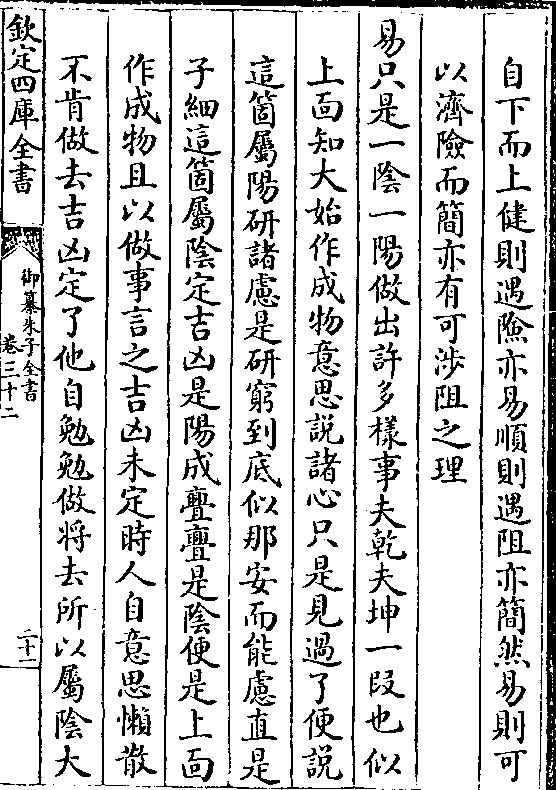 自下而上健則遇險亦易順則遇阻亦簡然易則可
以濟險而簡亦有可涉阻之理
易只是一陰一陽做出許多樣事夫乾夫坤一段也似
上面知大始作成物意思說諸心只是見過了便說
這箇屬陽研諸慮是研窮到底似那安而能慮直是
子細這箇屬陰定吉凶是陽成亹亹是陰便是上面
作成物且以做事言之吉凶未定時人自意思懶散
不肯做去吉凶定了他自勉勉做將去所以屬陰大
欽定四庫全書
御纂朱子全書
卷三十二
二十一